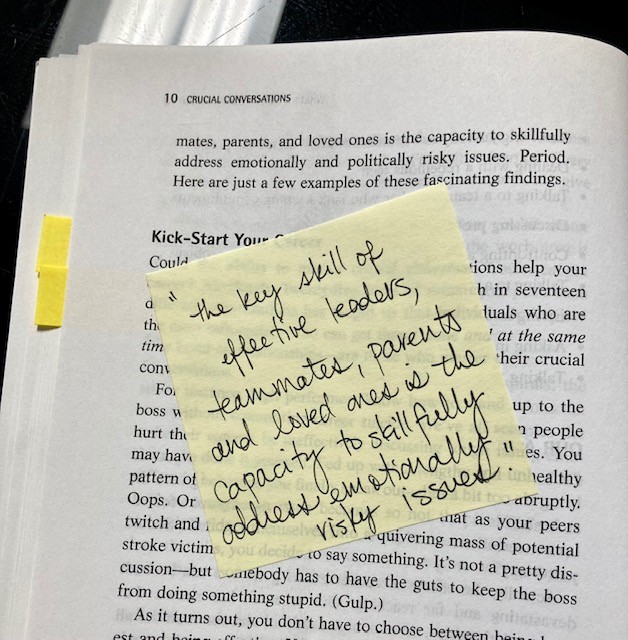 10 CRUCIAL CONVERSATIONS
mates, parents, and loved ones is the capacity to skillfully
address emotionally and politically risky issues. Period.
Here are just a few examples of these fascinating findings.
Kick-Start Your Career
Could
tions help your
h in seventeen
duals who are
th
and at the same
tim
their crucial
conv
For
up to the
boss w
n people
hurt the
es. You
may have
pattern of
unhealthy
Oops. Or
abruptly.
twitch and
that as your peers
quivering mass of potential
stroke victims, you decide to say something. It's not a pretty dis-
cussion—but somebody has to have the guts to keep the boss
from doing something stupid. (Gulp.)
As it turns out, you don't have to choose between being
"the key skill of
effective leaders,
teammates, parents
and loved ones is the
capacity to skillfully
address emotionally
risky issues."